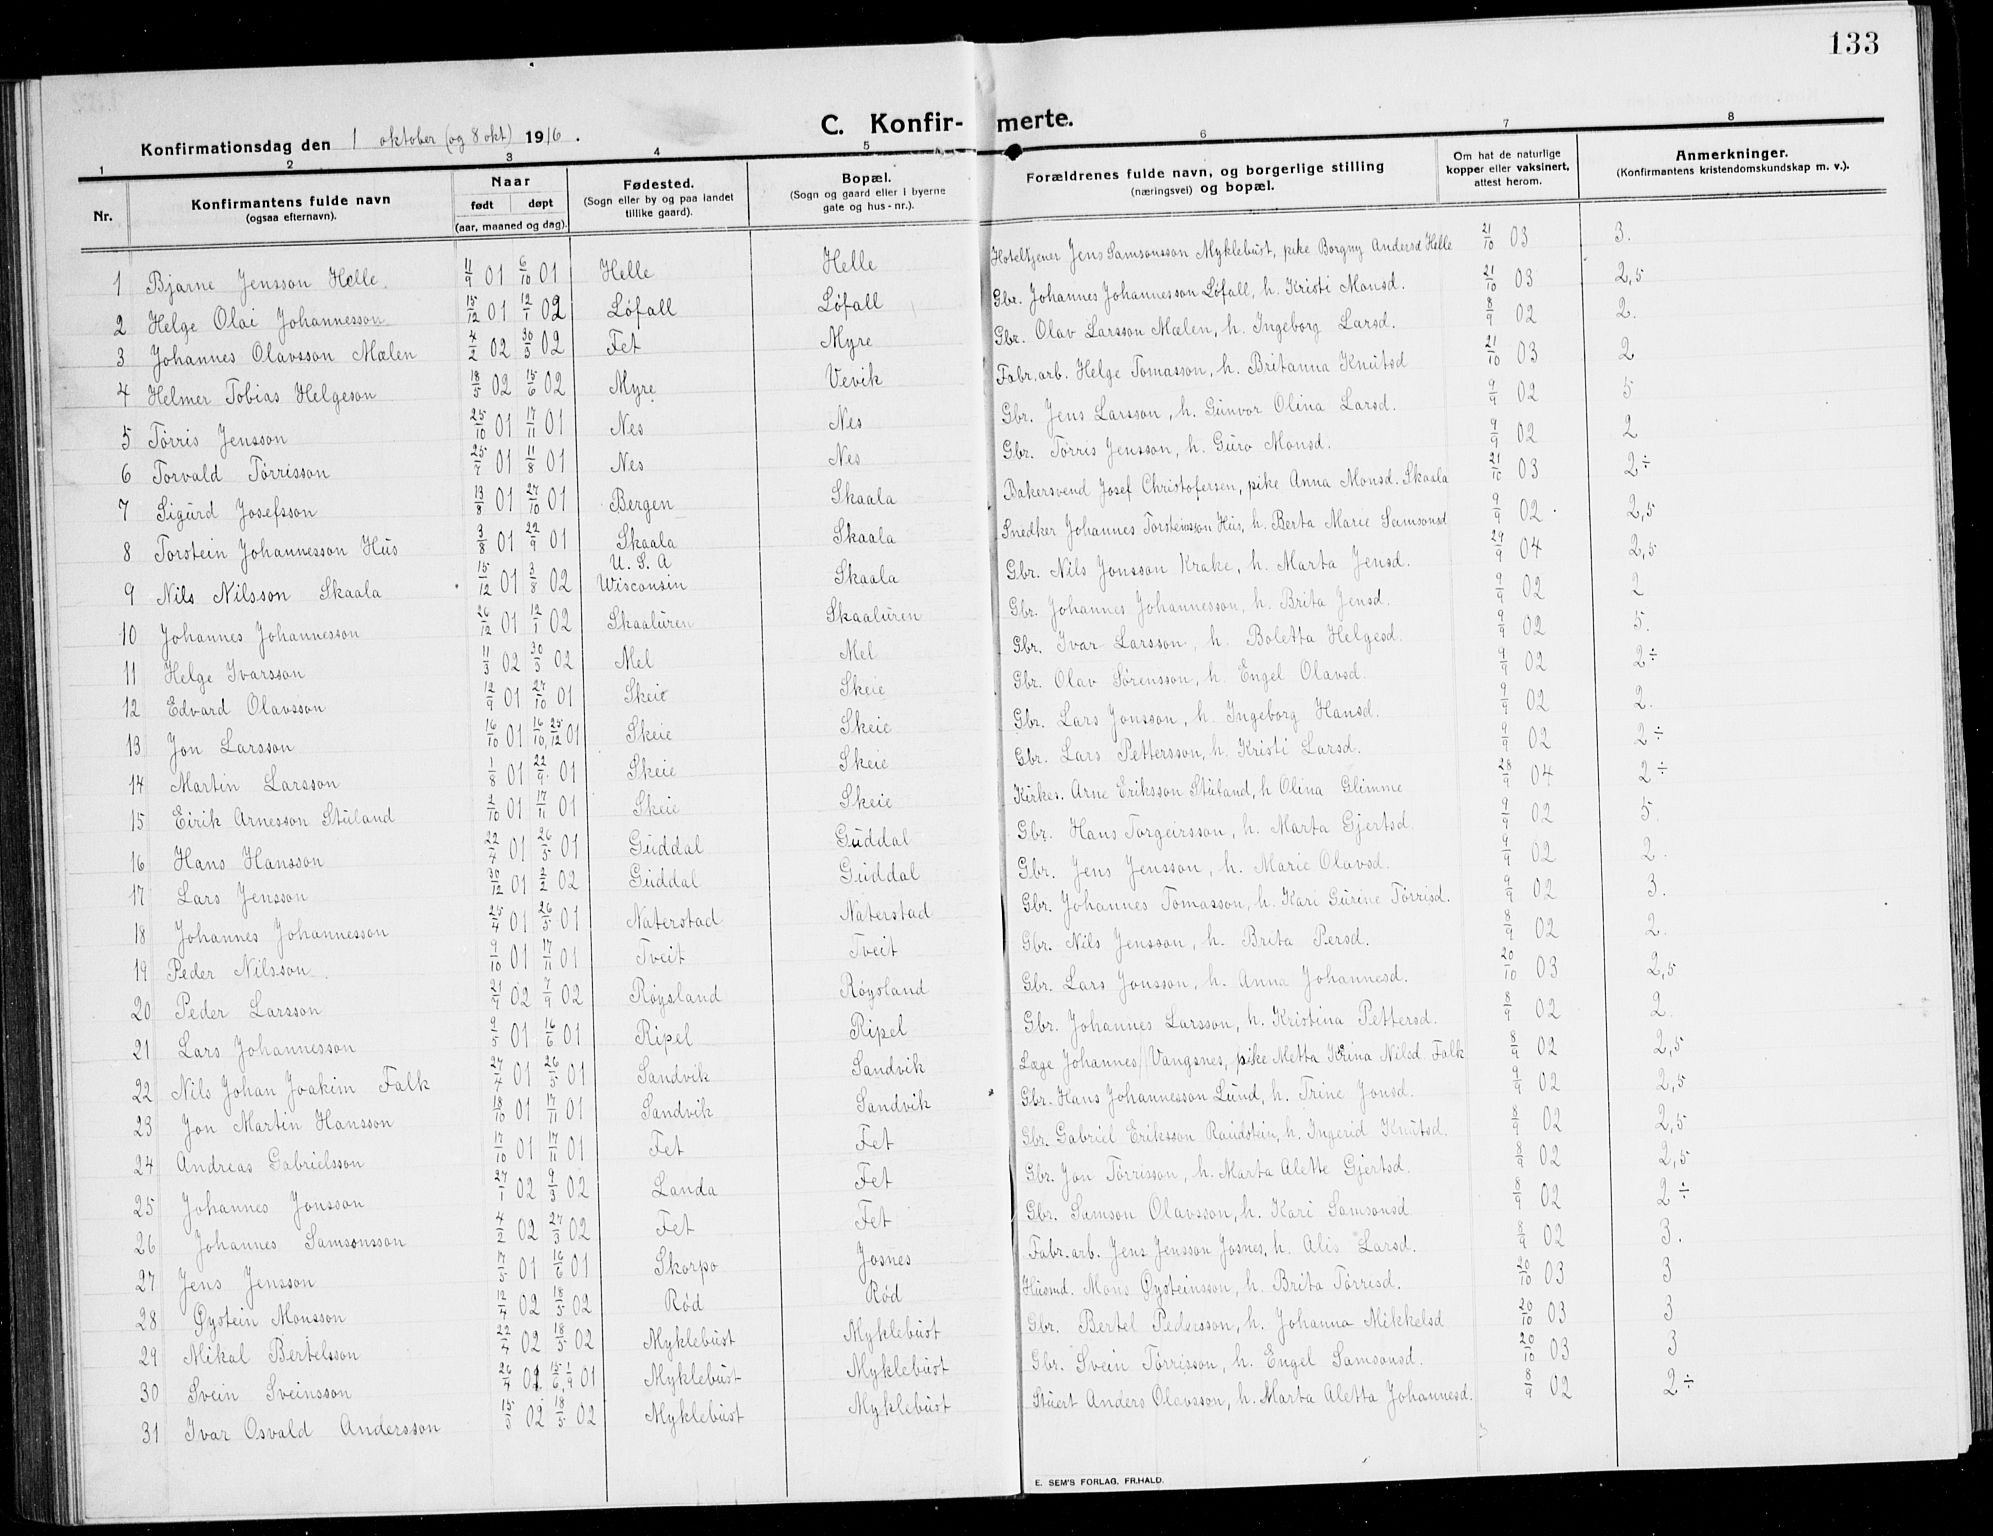 133
C. Konfirmerte.
Konfirmationsdag den 1 oktober (og 8 okt) 1916.
1 2 3 4 5 6 7 8
Nr. | Konfirmantens fulde navn (ogsaa efternavn). | Naar født døpt (aar, maaned og dag). | Fødested. (Sogn eller by og paa landet tillike gaard). | Bopæl. (Sogn og gaard eller i byerne gate og hus-nr.). | Forældrenes fulde navn, og borgerlige stilling (næringsvei) og bopæl. | Om hat de naturlige kopper eller vaksinert, attest herom. | Anmerkninger. (Konfirmantens kristendomskundskap m. v.).
1 Bjarne Jensson Helle. 11/9 01 6/10 01 Helle Helle Hoteltjener Jens Samsonsson Myklebust, pike Borgny Andersd Helle 21/10 03 3.
2 Helge Olai Johannesson 15/12 01 12/1 02 Løfall Løfall Gbr. Johannes Johannesson Løfall, h. Kristi Monsd. 21/10 03 2,5
3 Johannes Olavsson Mælen 4/2 02 30/3 02 Fet Myre Gbr. Olav Larsson Mælen, h. Ingeborg Larsd. 8/9 02 2.
4 Helmer Tobias Helgeson 18/5 02 15/6 02 Myre Vevik Fabr.arb. Helge Tomasson, h. Britanna Knutsd 21/10 03 2
5 Tørris Jensson 25/10 01 17/11 01 Nes Nes Gbr. Jens Larsson, h. Gunvor Olina Larsd. 9/9 02 5
6 Torvald Tørrisson 01 11/8 01 Nes Nes Gbr. Tørris Jensson, h. Guro Monsd. 9/9 02 2
7 Sigurd Josefsson 13/8 01 27/10 01 Bergen Skaala Bakersvend Josef Christofersen, pike Anna Monsd. Skaala 21/10 03 2÷
8 Torstein Johannesson Hus 3/8 01 22/9 01 Skaala Skaala Snedker Johannes Torsteinsson Hus, h. Berta Marie Samsonsd 9/9 02 2,5
9 Nils Nilsson Skaala 15/12 01 3/8 02 U. S. A Wisconsin Skaala Gbr. Nils Jonsson Krake, h. Marta Jensd. 29/9 04 2,5
10 Johannes Johannesson 26/12 01 12/1 02 Skaaluren Skaaluren Gbr. Johannes Johannesson, h. Brita Jensd. 9/9 02 2
11 Helge Ivarsson 11/3 02 30/3 02 Mel Mel Gbr. Ivar Larsson, h. Boletta Helgesd. 9/9 02 5.
12 Edvard Olavsson 12/9 01 27/10 01 Skeie Skeie Gbr. Olav Sørensson, h. Engel Olavsd. 9/9 02 2÷
13 Jon Larsson 16/10 01 16/10, 25/12 01 Skeie Skeie Gbr. Lars Jonsson, h. Ingeborg Hansd. 9/9 02 2.
14 Martin Larsson 1/8 01 22/9 01 Skeie Skeie Gbr. Lars Pettersson, h. Kristi Larsd. 9/9 02 2÷
15 Eirik Arnesson Stuland 2/10 01 17/11 01 Skeie Skeie Kirkes. Arne Eriksson Stuland, h Olina Glimme 28/9 04 2÷
16 Hans Hansson 22/4 01 26/5 01 Guddal Guddal Gbr. Hans Torgeirsson, h. Marta Gjertsd. 9/9 02 5.
17 Lars Jensson 30/12 01 2/2 02 Guddal Guddal Gbr. Jens Jensson, h. Marie Olavsd. 9/9 02 2.
18 Johannes Johannesson 25/4 01 26/5 01 Naterstad Naterstad Gbr. Johannes Tomasson, h. Kari Gurine Tørrisd. 9/9 02 3.
19 Peder Nilsson 9/10 01 17/11 01 Tveit Tveit Gbr. Nils Jensson, h. Brita Persd. 8/9 02 2.
20 Peder Larsson 02 7/9 02 Røysland Røysland Gbr. Lars Jonsson, h. Anna Johannesd. 20/10 03 2,5
21 Lars Johannesson 9/5 01 16/6 01 Ripel Ripel Gbr. Johannes Larsson, h. Kristina Pettersd. 8/9 02 2.
22 Nils Johan Joakim Falk 27/4 01 26/5 01 Sandvik Sandvik Læge Johannes Vangsnes, pike Metta Nilsd. Falk 8/9 02 2,5
23 Jon Martin Hansson 18/10 01 17/11 01 Sandvik Sandvik Gbr. Hans Johannesson Lund, h. Trine Jonsd. 9/9 02 2,5
24 Andreas Gabrielsson 17/10 01 17/11 01 Fet Fet Gbr. Gabriel Eriksson Raudstein, h. Ingerid Knutsd. 8/9 02 2,5
25 Johannes Jonsson 27/1 02 9/3 02 Landa Fet Gbr. Jon Tørrisson, h. Marta Alette Gjertsd. 8/9 02 2,5
26 Johannes Samsonsson 4/2 02 27/3 02 Fet Fet Gbr. Samson Olavsson, h. Kari Samsonsd 8/9 02 2÷
27 Jens Jensson 17/5 01 16/6 01 Skorpo Josnes Fabr.arb. Jens Jensson Josnes, h. Alis Larsd. 8/9 02 3.
28 Øystein Monsson 12/4 02 18/5 02 Rød Rød Husmd. Mons Øysteinsson, h. Brita Tørrisd. 20/10 03 3
29 Mikal Bertelsson 22/4 02 18/5 02 Myklebust Myklebust Gbr. Bertel Pedersson, h. Johanna Mikkelsd 20/10 03 3
30 Svein Sveinsson 26/4 01 15/6, 1/9 01 Myklebust Myklebust Gbr. Svein Tørrisson, h. Engel Samsonsd. 20/10 03 3
31 Ivar Osvald Andersson 15/3 02 18/5 02 Myklebust Myklebust Stuert Anders Olavsson, h. Marta Aletta Johannesd. 8/9 02 2÷
E. SEM'S FORLAG, FR.HALD.